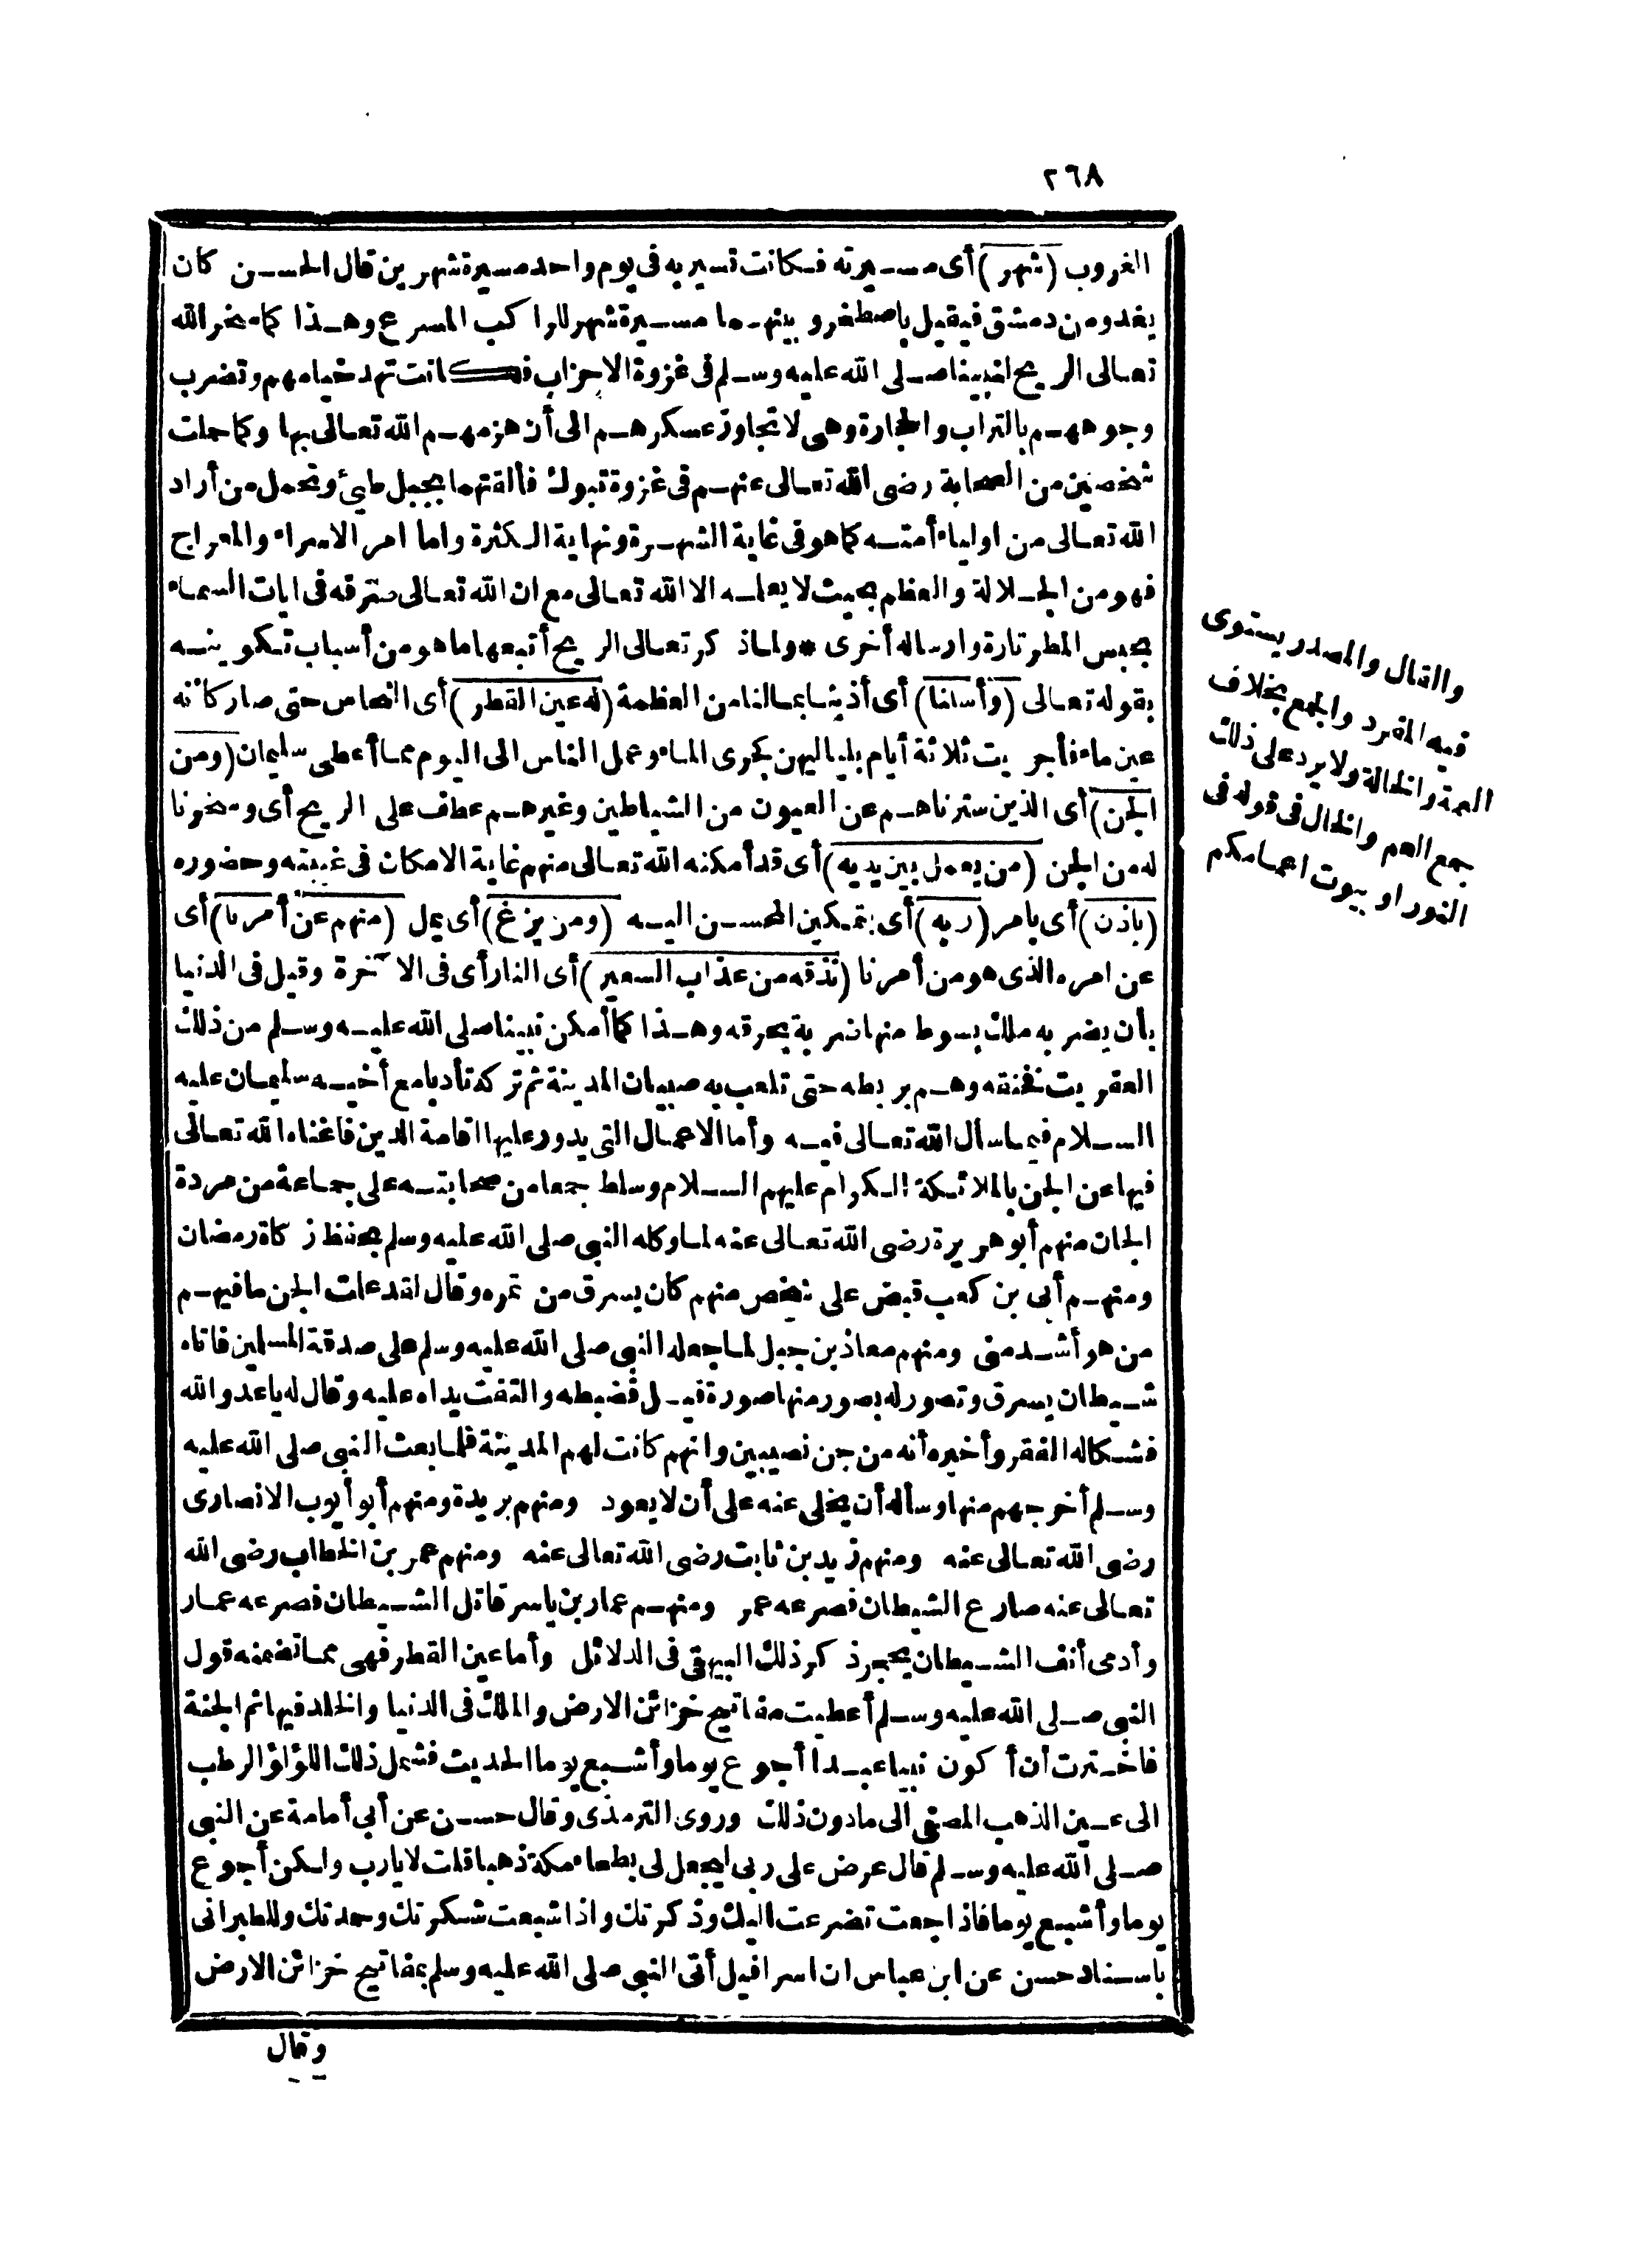 ٢٦٨
الغروب (شهر) أى مسيرته فكانت تسير به فى يوم واحد مسيرة شهرين قال الحسن كان
يغدو من دمشق فيقيل باصطخر وبينهما مسيرة شهر للراكب المسرع وهذا كما سخر الله
تعالى الريح لنبينا صلى الله عليه وسلم فى غزوة الاحزاب فكانت تهد خيامهم وتضرب
وجوههم بالتراب والحجارة وهى لا تجاوز عسكرهم الى أن هزمهم الله تعالى بها وكما حملت
شخصين من الصحابة رضى الله تعالى عنهم فى غزوة تبوك فألقتهما بجبل طيئ وتحمل من أراد
الله تعالى من اولياء أمته كما هو فى غاية الشهرة ونهاية الكثرة واما امر الاسراء والمعراج
فهو من الجلالة والعظم بحيث لا يعلمه الا الله تعالى مع ان الله تعالى صرفه فى ايات السماء
بحبس المطر تارة وارساله أخرى * ولما ذكر تعالى الريح أتبعها ما هو من أسباب تكوينه
بقوله تعالى (وأسلنا) أى أذبنا بما لنا من العظمة (له عين القطر) أى النحاس حتى صار كأنه
عين ماء فأجريت ثلاثة أيام بلياليهن كجرى الماء وعمل الناس الى اليوم مما أعطى سليمان (ومن
الجن) أى الذين سترناهم عن العيون من الشياطين وغيرهم عطف على الريح أى وسخرنا
له من الجن (من يعمل بين يديه) أى قد أمكنه الله تعالى منهم غاية الامكان فى غيبته وحضوره
(باذن) أى بامر (ربه) أى بتمكين المحسن اليه (ومن يزغ) أى يمل (منهم عن أمرنا) أى
عن امره الذى هو من أمرنا (نذقه من عذاب السعير) أى النار أى فى الآخرة وقيل فى الدنيا
بأن يضربه ملك بسوط منها ضربة يحرقه وهذا كما أمكن نبينا صلى الله عليه وسلم من ذلك
العفريت فخنقه وهم بربطه حتى تلعب به صبيان المدينة ثم تركه تأدبا مع أخيه سليمان عليه
السلام فيما سأل الله تعالى فيه وأما الاعمال التى يدور عليها اقامة الدين فاغناه الله تعالى
فيها عن الجن بالملائكة الكرام عليهم السلام وسلط جمعا من صحابته على جماعة من مردة
الجان منهم أبو هريرة رضى الله تعالى عنه لما وكله النبى صلى الله عليه وسلم بحفظ زكاة رمضان
ومنهم أبى بن كعب قبض على شخص منهم كان يسرق من تمره وقال لقد علمت الجن ما فيهم
من هو أشد منى ومنهم معاذ بن جبل لما جعله النبى صلى الله عليه وسلم على صدقة المسلمين فاتاه
شيطان يسرق وتصور له بصور منها صورة فيل فضبطه والتفت يداه عليه وقال له يا عدو الله
فشكا له الفقر وأخبره أنه من جن نصيبين وانهم كانت لهم المدينة فلما بعث النبى صلى الله عليه
وسلم أخرجهم منها وسأله أن يخلى عنه على أن لا يعود ومنهم بريدة ومنهم أبو أيوب الانصارى
رضى الله تعالى عنه ومنهم زيد بن ثابت رضى الله تعالى عنه ومنهم عمر بن الخطاب رضى الله
تعالى عنه صارع الشيطان فصرعه عمر ومنهم عمار بن ياسر قاتل الشيطان فصرعه عمار
وأدمى أنف الشيطان بحجر ذكر ذلك البيهقى فى الدلائل وأما عين القطر فهى مما تضمنه قول
النبى صلى الله عليه وسلم أعطيت مفاتيح خزائن الارض والملك فى الدنيا والخلد فيها ثم الجنة
فاخترت أن أكون نبيا عبدا أجوع يوما وأشبع يوما الحديث فشمل ذلك اللؤلؤ الرطب
الى عين الذهب المصفى الى ما دون ذلك وروى الترمذى وقال حسن عن أبى أمامة عن النبى
صلى الله عليه وسلم قال عرض على ربى ليجعل لى بطحاء مكة ذهبا قلت لا يارب ولكن أجوع
يوما وأشبع يوما فاذا جعت تضرعت اليك وذكرتك واذا شبعت شكرتك وحمدتك وللطبرانى
باسناد حسن عن ابن عباس ان اسرافيل أتى النبى صلى الله عليه وسلم بمفاتيح خزائن الارض
وقال
والقال والمصدر يستوى
فيه المفرد والجمع بخلاف
العمة والخالة ولا يرد على ذلك
جمع العم والخال فى قوله فى
النور او بيوت اعمامكم